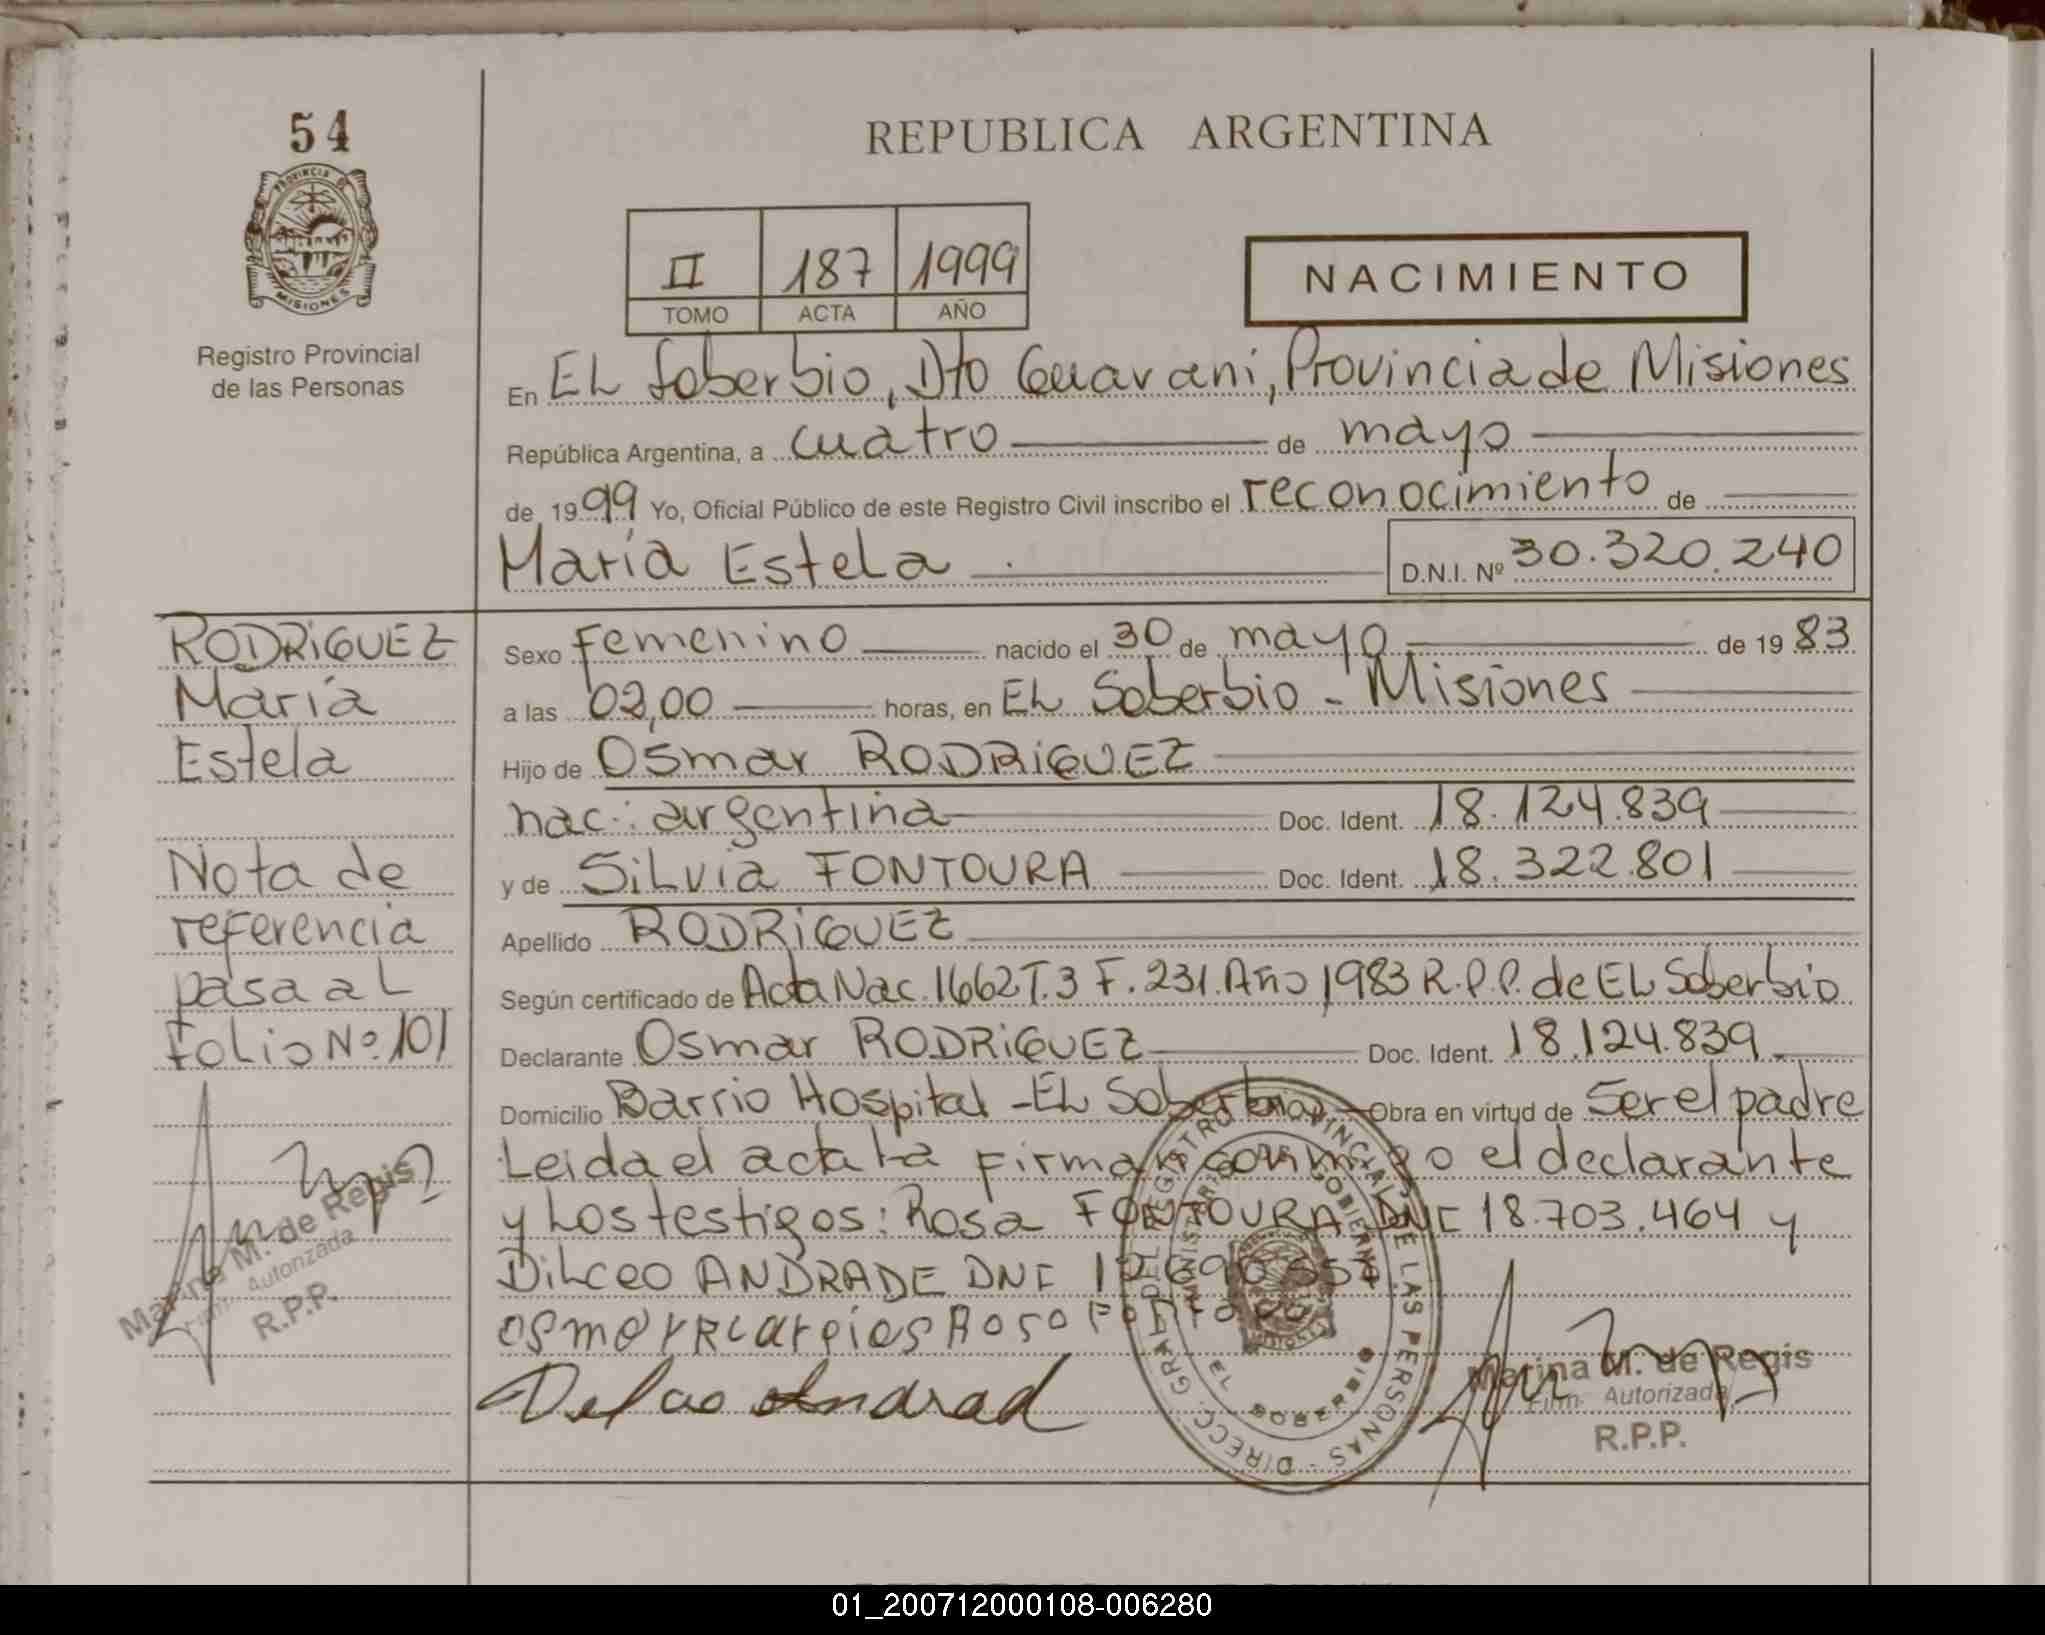 54
PROVINCIA DE
MISIONES
Registro Provincial
de las Personas
REPUBLICA ARGENTINA
II 187 1999
TOMO ACTA AÑO
NACIMIENTO
En EL Soberbio, Dto Guarani, Provincia de Misiones
República Argentina, a cuatro de mayo
de 1999 Yo, Oficial Público de este Registro Civil inscribo el reconocimiento de
María Estela D.N.I. Nº 30.320.240
RODRIGUEZ
María
Estela
Nota de
referencia
pasa al
folio Nº 101
Marina M. de Regis
Firm. Autorizada
R.P.P.
Sexo Femenino nacido el 30 de mayo de 1983
a las 02,00 horas, en EL Soberbio - Misiones
Hijo de Osmar RODRIGUEZ
nac: argentina Doc. Ident. 18.124.839
y de Silvia FONTOURA Doc. Ident. 18.322.801
Apellido RODRIGUEZ
Según certificado de Acta Nac. 1662 T.3 F.231. Año 1983 R.P.P. de EL Soberbio
Declarante Osmar RODRIGUEZ Doc. Ident. 18.124.839
Domicilio Barrio Hospital - EL Soberbio Obra en virtud de ser el padre
Leida el acta la firman conmigo el declarante
y Los testigos: Rosa FONTOURA DNI 18.703.464 y
Dilceo ANDRADE DNI
Andrad
DIRECC. GRAL. DEL REGISTRO PROVINCIAL DE LAS PERSONAS
MINISTERIO DE GOBIERNO
SOBERBIO
Marina M. de Regis
Firm. Autorizada
R.P.P.
01_200712000108-006280